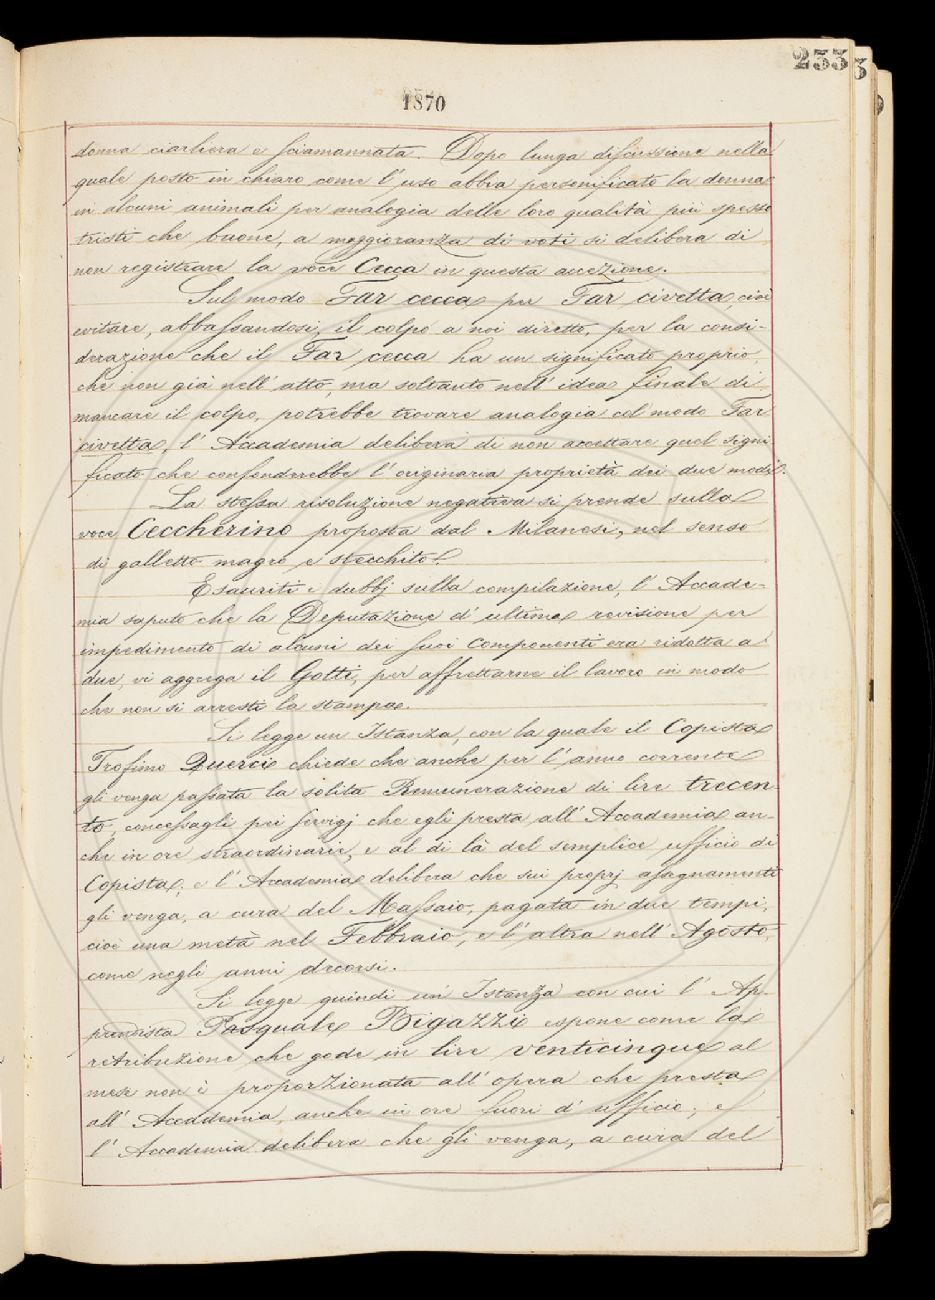 233
1870
donna ciarliera e sciamannata. Dopo lunga discussione nella
quale posto in chiaro come l'uso abbia personificato la donna
in alcuni animali per analogia delle loro qualità più spesso
tristi che buone, a maggioranza di voti si delibera di
non registrare la voce Cecca in questa accezione.
Sul modo Far cecca per Far civetta, cioè
evitare, abbassandosi, il colpo a noi diretto, per la consi-
derazione che il Far cecca ha un significato proprio,
che non già nell'atto, ma soltanto nell'idea finale di
mancare il colpo, potrebbe trovare analogia col modo Far
civetta, l'Accademia delibera di non accettare quel signi
ficato che confonderebbe l'originaria proprietà dei due modi.
La stessa risoluzione negativa si prende sulla
voce Ceccherino proposta dal Milanesi, nel senso
di galletto magro e stecchito.
Esauriti i dubbj sulla compilazione, l'Accade-
mia saputo che la Deputazione d'ultima revisione per
impedimento di alcuni dei suoi componenti era ridotta a
due, vi aggrega il Gotti, per affrettarne il lavoro in modo
che non si arresti la stampa.
Si legge un Istanza, con la quale il Copista
Trofimo Querci chiede che anche per l'anno corrente
gli venga passata la solita Remunerazione di lire trecen
to, concessagli pei servigj che egli presta all'Accademia an-
che in ore straordinarie, e al di là del semplice ufficio di
Copista; e l'Accademia delibera che sui proprj assegnamenti
gli venga, a cura del Massaio, pagata in due tempi,
cioè una metà nel Febbraio, e l'altra nell'Agosto,
come negli anni decorsi.
Si legge quindi un'Istanza con cui l'Ap-
prendista Pasquale Bigazzi espone come la
retribuzione che gode in lire venticinque al
mese non è proporzionata all'opera che presta
all'Accademia, anche in ore fuori d'ufficio; e
l'Accademia delibera che gli venga, a cura del